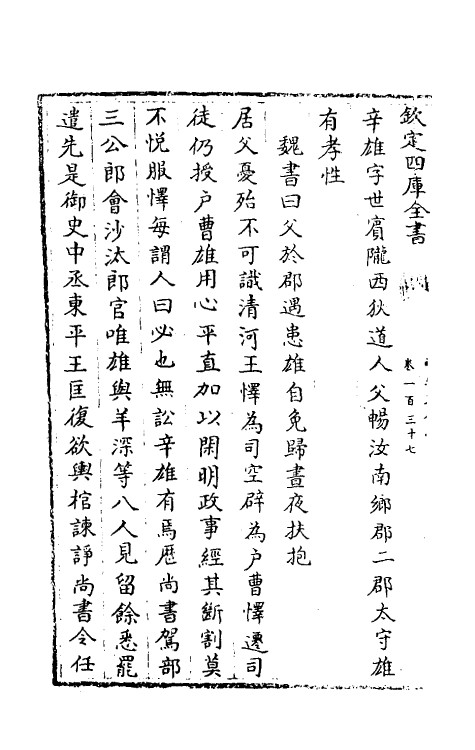 欽定四庫全書
卷一百三十七
辛雄字世賓隴西狄道人父暢汝南鄉郡二郡太守雄
有孝性
魏書曰父於郡遇患雄自免歸晝夜扶抱
居父憂殆不可識清河王懌為司空辟為户曹懌遷司
徒仍授户曹雄用心平直加以閑明政事經其斷割莫
不悦服懌每謂人曰必也無訟辛雄有焉歷尚書駕部
三公郎會沙汰郎官唯雄與羊深等八人見留餘悉罷
遣先是御史中丞東平王匡復欲輿棺諫諍尚書令任